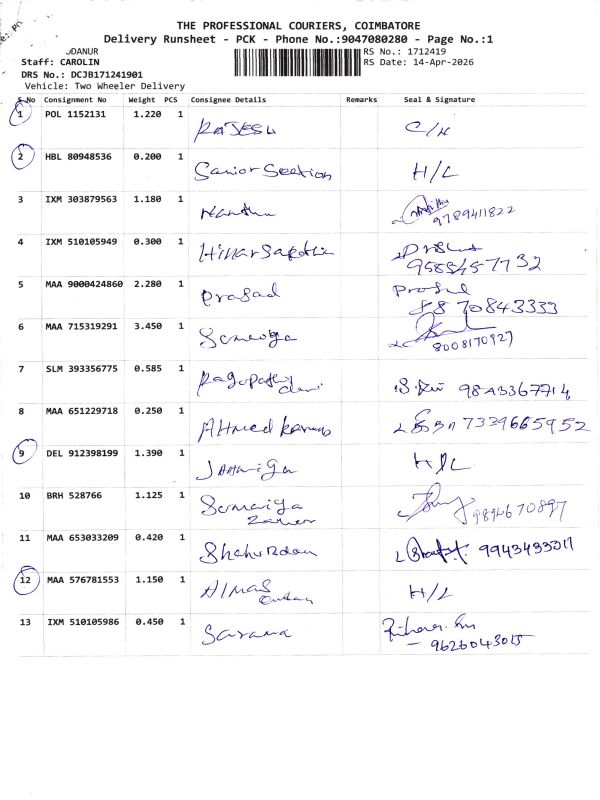 THE PROFESSIONAL COURIERS, COIMBATORE
Delivery Runsheet - PCK - Phone No.:9047080280 - Page No.:1
JDANUR
Staff: CAROLIN
RS No.: 1712419
DRS No.: DCJB171241901
RS Date: 14-Apr-2026
Vehicle: Two Wheeler Delivery
S.No Consignment No Weight PCS Consignee Details Remarks Seal & Signature
1 POL 1152131 1.220 1 RAJESH C/H
2 HBL 80948536 0.200 1 Senior Section H/L
3 IXM 303879563 1.180 1 Nantha
9789411822
4 IXM 510105949 0.300 1
5 MAA 9000424860 2.280 1 Prasad
8870843333
6 MAA 715319291 3.450 1
8008170927
7 SLM 393356775 0.585 1 Ragupathy
Devi
8 MAA 651229718 0.250 1 Ahmed 7339665952
9 DEL 912398199 1.390 1 H/L
10 BRH 528766 1.125 1 Sumaiya
9894670897
11 MAA 653033209 0.420 1
12 MAA 576781553 1.150 1 Almas H/L
13 IXM 510105986 0.450 1 Sarana
9626043015